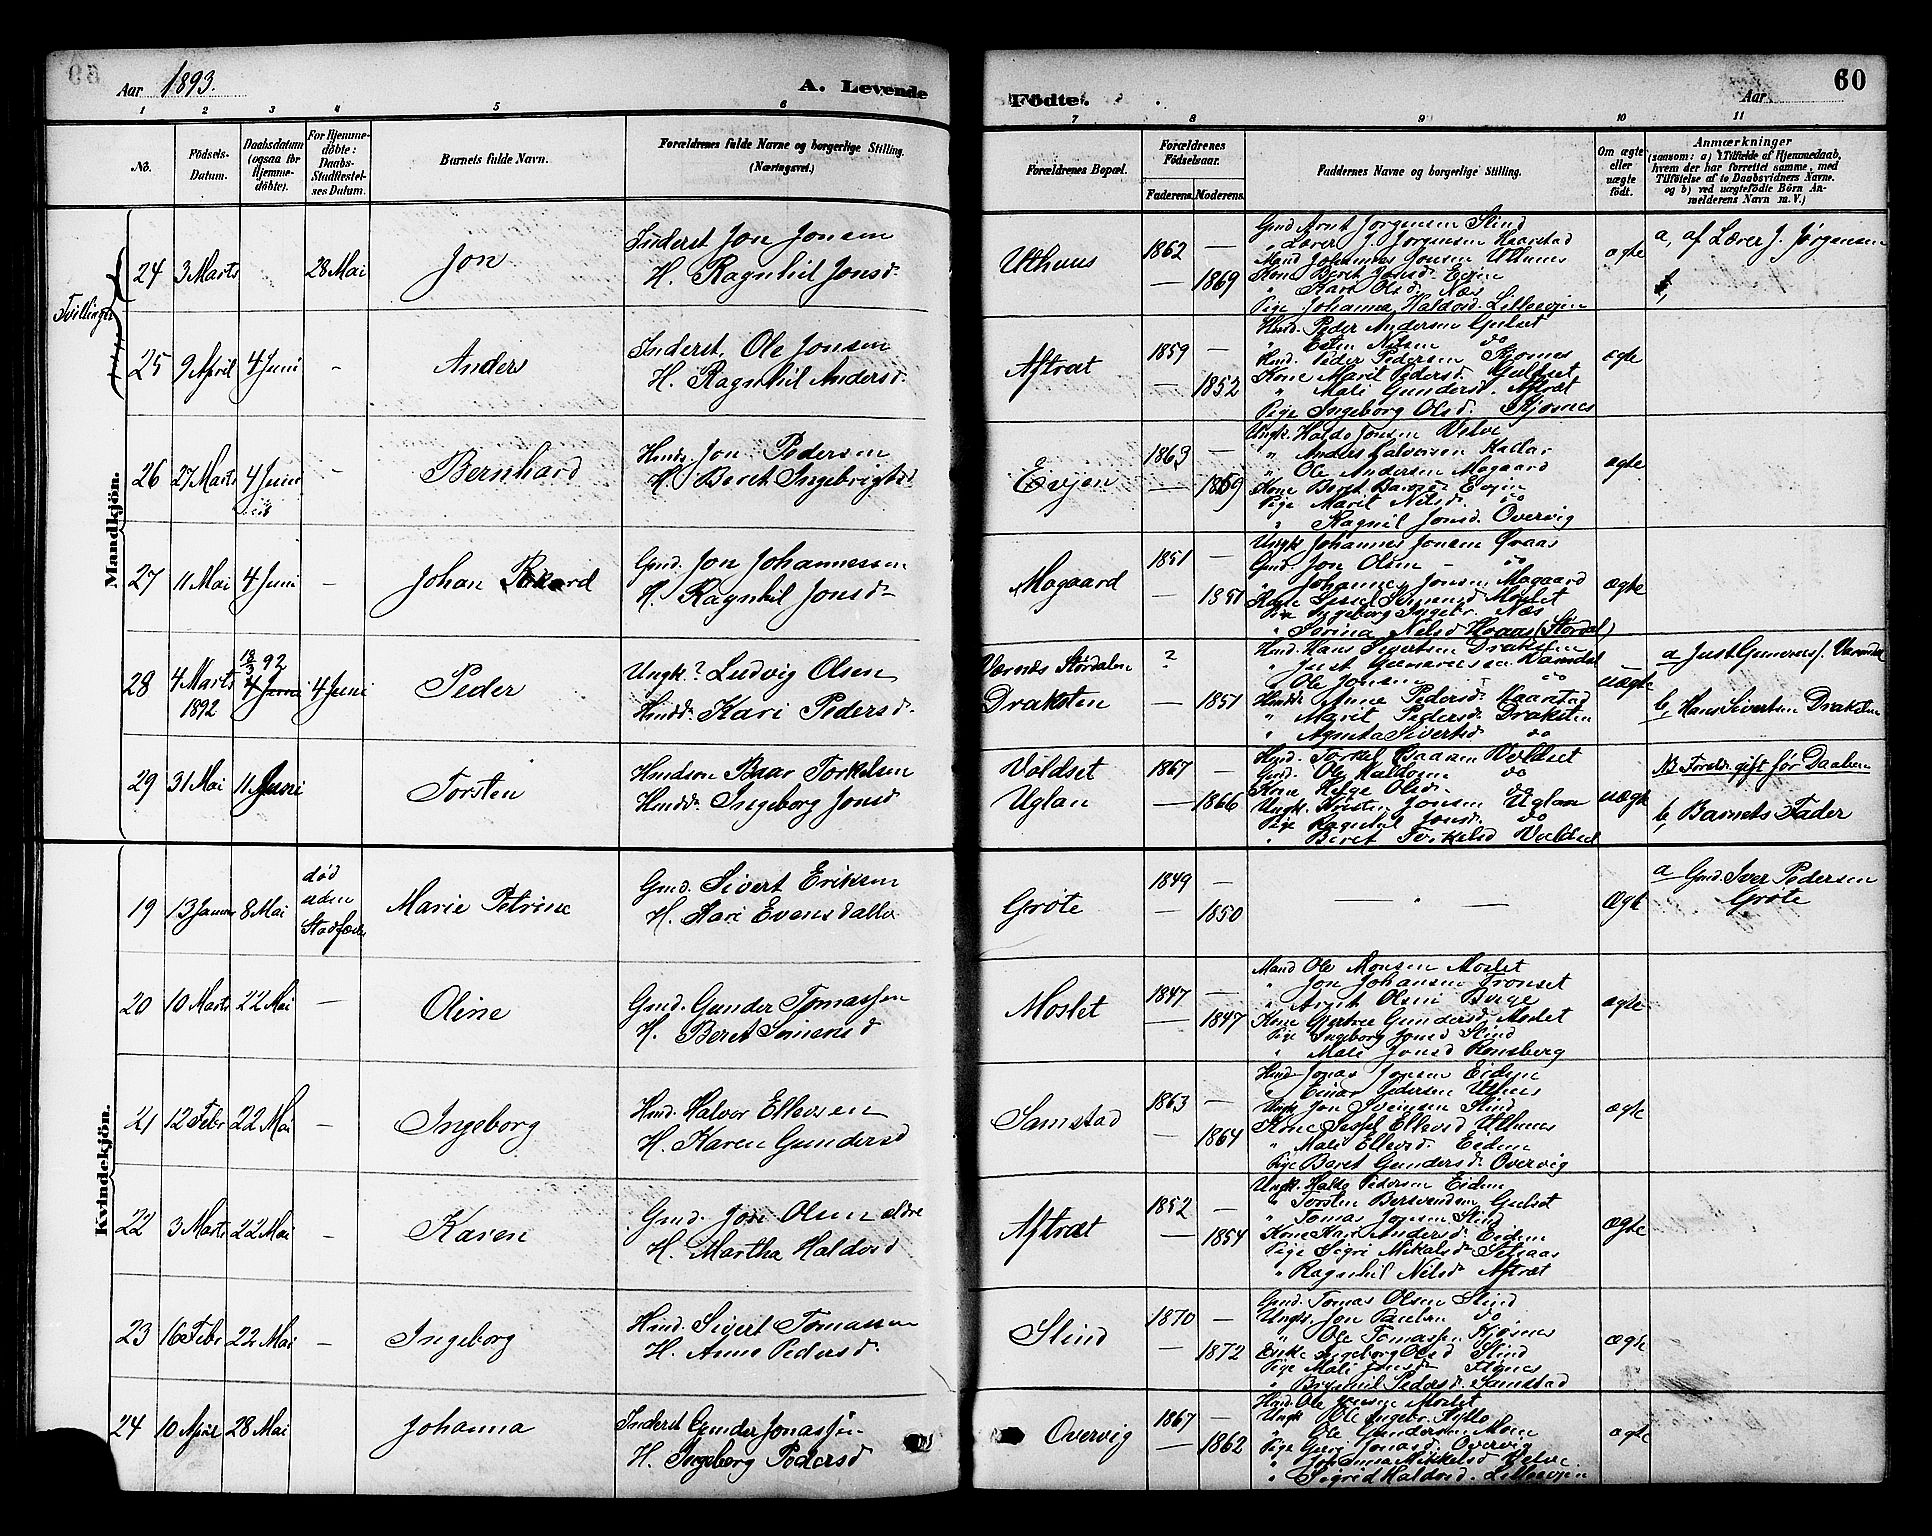 Aar 1893.
A. Levende
Födte.
Aar
60
1 2 3 4 5 6 7 8 9 10 11
No.
Födsels-Datum.
Daabsdatum (ogsaa for Hjemme-döbte).
For Hjemme-döbte: Daabs-Stadfæstel-ses Datum.
Barnets fulde Navn.
Forældrenes fulde Navne og borgerlige Stilling. (Næringsvei.)
Forældrenes Bopæl.
Forældrenes Födselsaar.
Faderens.
Moderens.
Faddernes Navne og borgerlige Stilling.
Om ægte eller uægte födt.
Anmærkninger
(saasom: a) i Tilfælde af Hjemmedaab, hvem der har forrettet samme, med Tilföielse af to Daabsvidners Navne. og b) ved uægtefödte Börn Anmelderens Navn m. V.)
Tvillinger
Mandkjön.
24 3 Marts 28 Mai Jon
Inderst Jon Jonsen
H. Ragnhil Jonsd.
Uthuus 1862 —
— 1869
Gmd Arnt Jorgensen Slind
" Lærer J. Jorgensen Haarstad
Mand Johannes Jonsen Uthuus
Kone Beret Jonsd. Evjen
" Kari Olsd. Næs
Pige Johanna Haldosd. Lilleevjen
ægte
a, af Lærer J. Jørgensen
25 9 April 4 Juni - Anders
Inderst. Ole Jonsen
H. Ragnhil Andersd.
Aftræt 1859 —
— 1852
Hmd. Peder Andersen Gulset
" Esten Nilsen do
Hmd. Peder Pedersen Kjosnes
Kone Marit Pedersd. Gulset
" Mali Gundersd. Aftræt
Pige Ingeborg Olsd. Kjosnes
ægte
26 27 Marts 4 Juni - Bernhard
Hmd. Jon Pedersen
H. Beret Ingebrigtsd
Evjen 1863 —
— 1869
Ungk. Haldo Jonsen Velve
" Anders Halvorsen
" Ole Andersen Mogaard
Kone Beret Evjen
Pige Marit Nilsd. do
" Ragnil Jonsd. Overvig
ægte
27 11 Mai 4 Juni - Johan Rikard
Gmd. Jon Johannesen
H. Ragnhil Jonsd.
Mogaard 1851 —
— 1851
Ungk Johannes Jonsen Øvaas
Gmd. Jon Olsen - do
" Johannes Jonsen Mogaard
Kone Sissel Moslet
Pige Ingeborg Ingebr. Næs
" Serina Nelsd (Stordal)
ægte
28 4 Marts 1892 18/3 92 4 Juni 4 Juni Peder
Ungk? Ludvig Olsen
Hmdd. Kari Pedersd.
Værnæs Stördalen
Draksten
? —
— 1851
Hmd. Hans Sivertsen Draksten
" Just Gunnersen
" Ole Jonsen do
Hmdd. Anne Pedersd. Haarstad
" Marit Pedersd. Draksten
" Agneta Sivertsd do
uægte
a Just Gunnersf.
b, Hans Sivertsen Draksten
29 31 Mai 11 Juni Torsten
Hmdsøn Baar Torkelsen
Hmdd. Ingeborg Jonsd
Voldset
Uglan
1867 —
— 1866
Hmd. Torkel Baarsen Voldset
Gmd. Ole Haldosen do
Kone Helge Olsd. do
Ungk. Kristen Jonsen Uglan
Pige Ragnhil Jonsd. do
" Beret Torkelsd Voldset
uægte
NB Foreld. gift før Daaben
b, Barnets Fader
Kvindekjön.
19 13 Januar 8 Mai død uden Stadfæst. Marie Petrine
Gmd. Sivert Eriksen
H. Kari Evensdatter
Gröte 1849 —
— 1850
— " —
Ægte
a Gmd. Iver Pedersen Gröte
20 10 Marts 22 Mai — Oline
Gmd. Gunder Tomassen
H. Beret Simensd
Moslet 1847 —
— 1847
Mand Ole Monsen Moslet
" Jon Johansen Tronset
" Arnt Olsen Berge
Kone Gjertrue Gundersd. Moslet
Pige Ingeborg Jonsd Slind
" Mali Jonsd Rönsberg
ægte
21 12 Febr 22 Mai - Ingeborg
Hmd. Halvor Ellevsen
H. Karen Gundersd
Samstad 1863 —
— 1864
Hmd. Jonas Jonsen Eidem
" Einar Pedersen Uthuus
Ungk. Jon Sveinsen Slind
Kone Sissel Ellevsd Uthuus
" Mali Ellevsd. Eidem
Pige Beret Gundersd. Overvig
ægte
22 3 Marts 22 Mai - Karen
Gmd. Jon Olsen eldre
H. Martha Haldosd
Aftræt 1852 —
— 1854
Ungk. Haldo Pedersen Eidem
" Torsten Bersvendsen Gulset
" Tomas Jonsen Slind
Kone Kari Andersd. Eidem
Pige Sigri Mikalsd. Selaas
" Ragnhil Nilsd. Aftræt
ægte
23 16 Febr 22 Mai - Ingeborg
Hmd. Sivert Tomassen
H. Anne Pedersd.
Slind 1870 —
— 1872
Gmd. Tomas Olsen Slind
Ungk. Jon Paulsen do
" Ole Tomassen Kjosnes
Enke Ingeborg Olsd Slind
Pige Mali Jonsd
" Pedersd. Samstad
ægte
24 10 April 28 Mai Johanna
Inderst Gunder Jonassen
H. Ingeborg Pedersd
Overvig 1867 —
— 1862
Hmd. Ole Jonsen Moslet
Ungk Ole Ingebr. Kyllo
" Ole Gundersen Moen
Pige Guri Jonasd. Overvig
" Johanna Mikkelsd. Velve
" Sigrid Haldosd. Lilleevjen
ægte